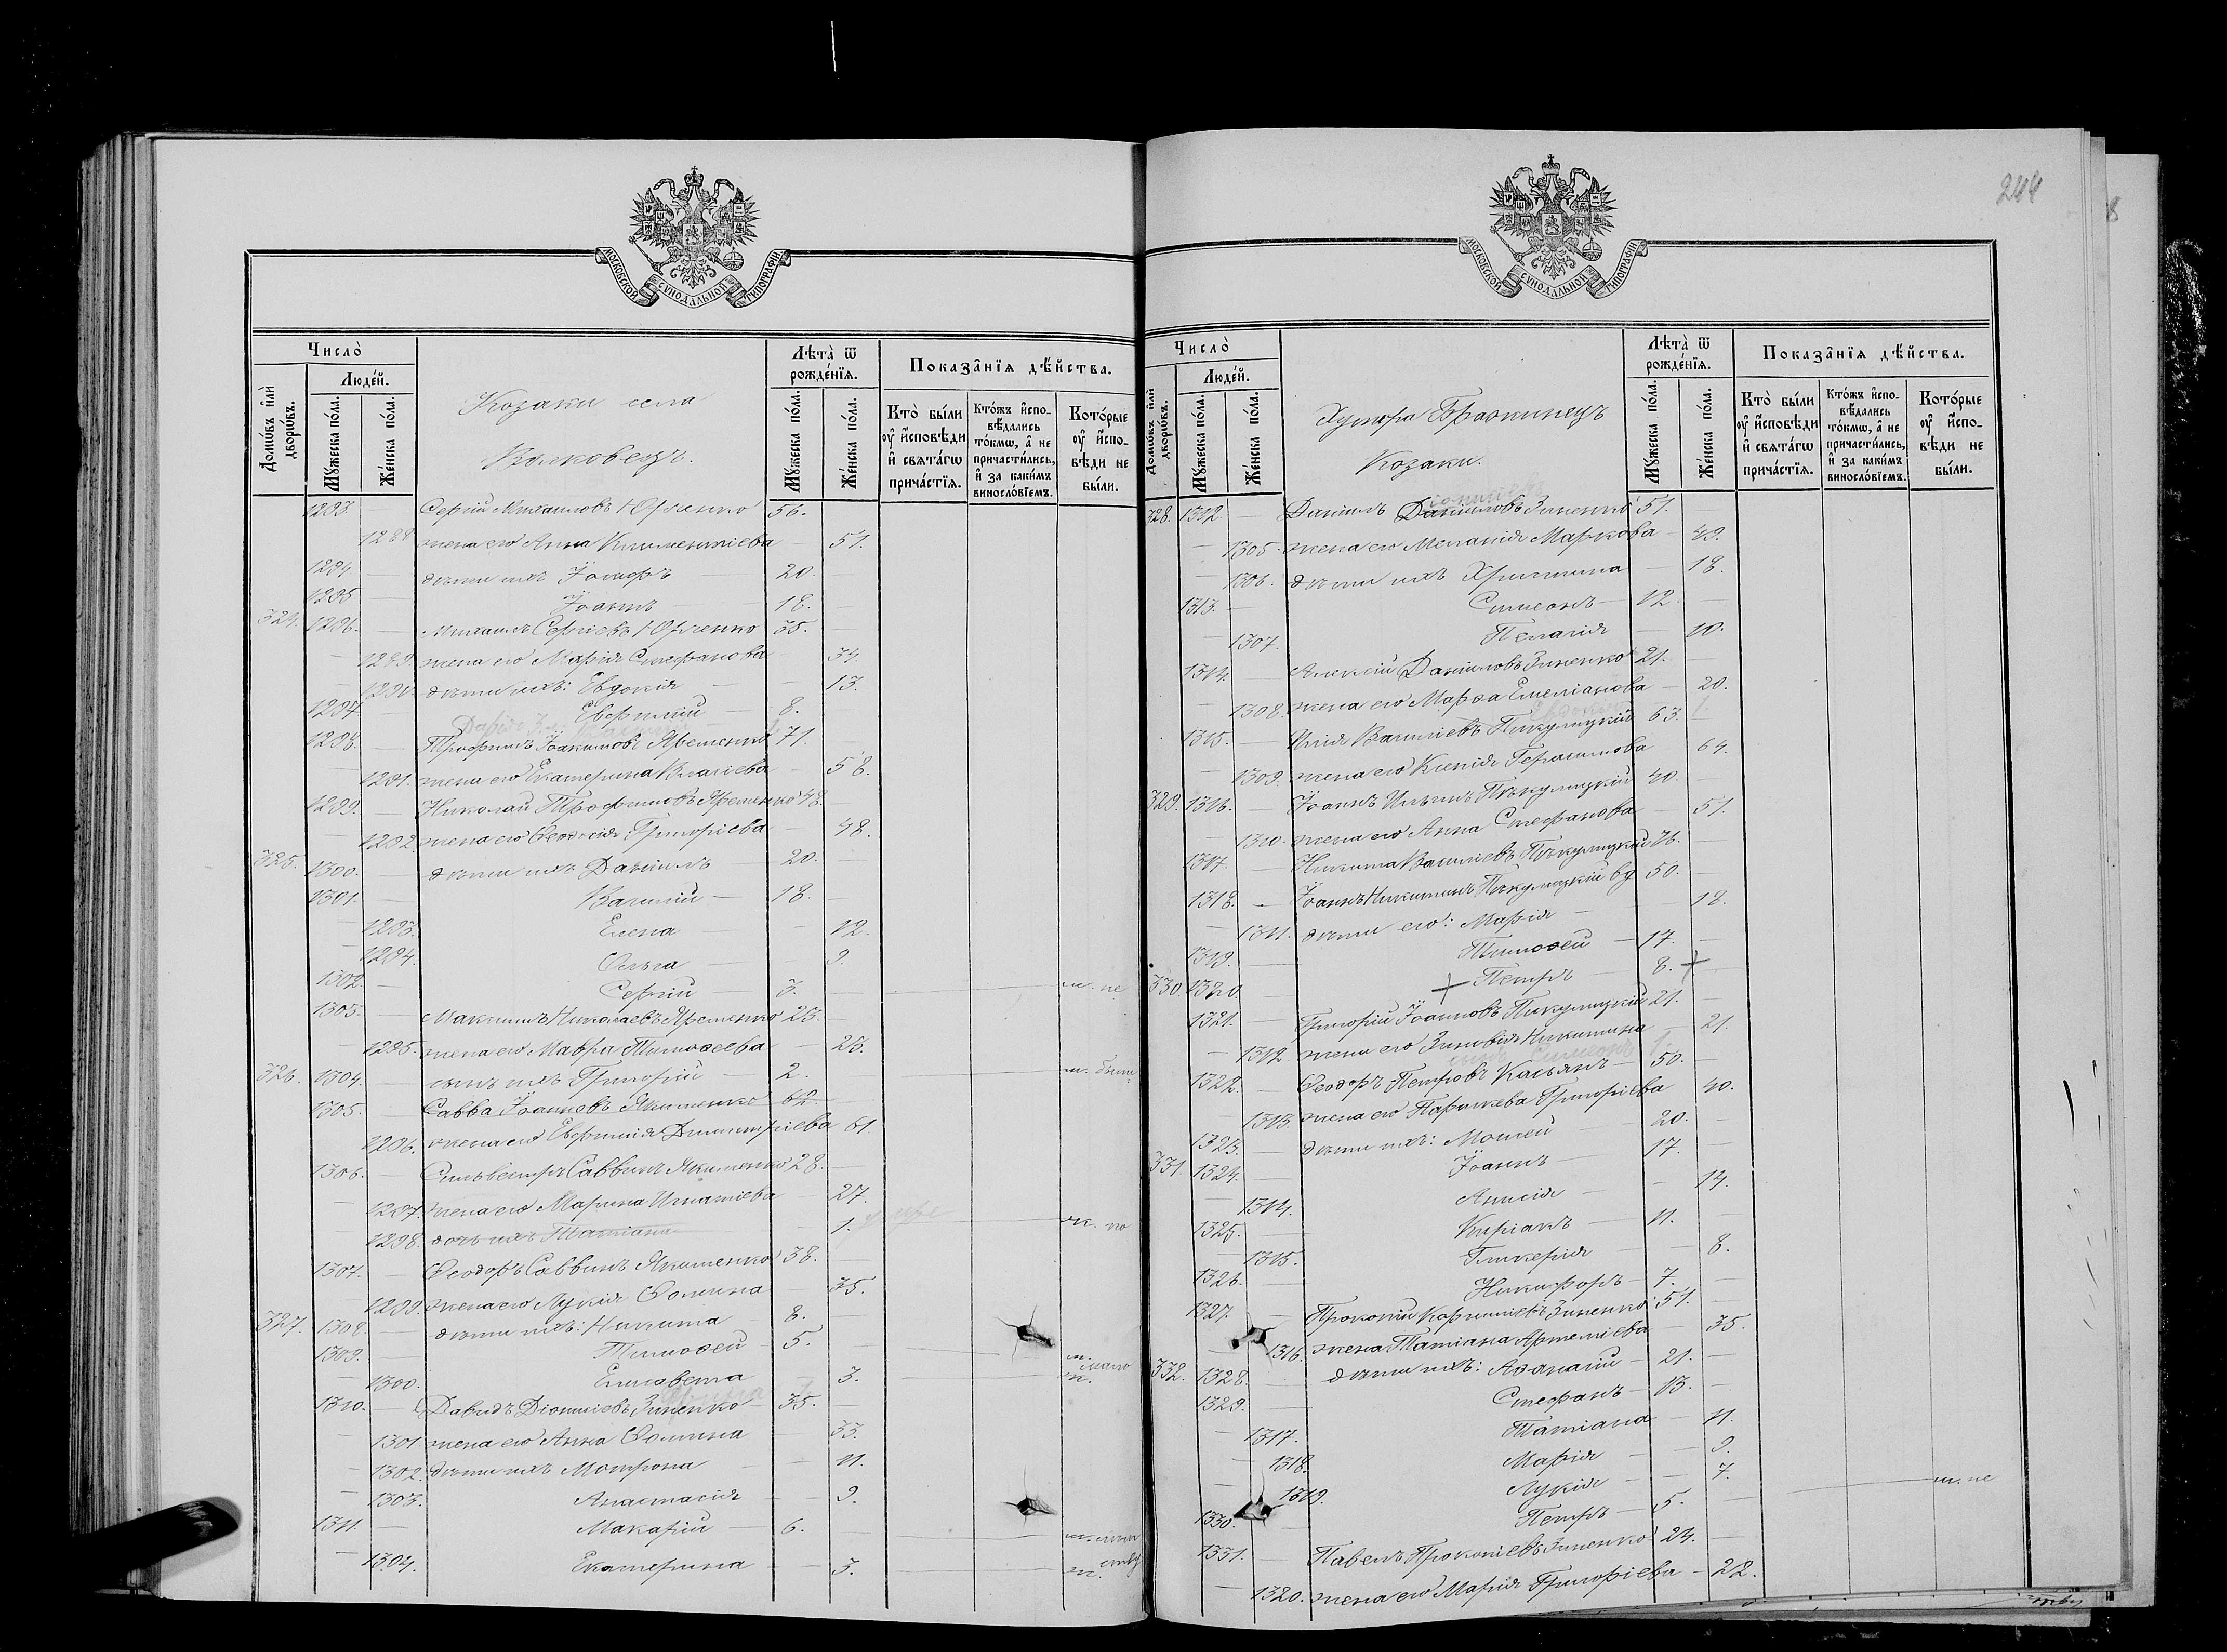 МОСКОВСКОЙ СѴНОДАЛЬНОЙ ТИПОГРАФІИ
Число̀
Люде́й.
Домѡ́въ и҆лѝ дворѡ́въ.
Мꙋ́жеска по́ла.
Же́нска по́ла.
Козаки села
Волковецъ.
Лѣта̀ ѿ рожде́нїѧ.
Мꙋ́жеска по́ла.
Же́нска по́ла.
Показа̑нїѧ дѣ́йства.
Кто̀ бы́ли оу҆ и҆сповѣ́ди и҆ свѧта́гѡ прича́стїѧ.
Кто́жъ и҆сповѣ́дались то́кмѡ, а҆ не причасти́лись, и҆ за каки́мъ виносло́вїемъ.
Кото́рые оу҆ и҆сповѣ́ди не бы́ли.
1293. Сергій Михаиловъ Юрченко 56.
1288 жена его Анна Климентіева 51.
1294 дѣти ихъ Іосифъ 20.
1295 Іоаннъ 18.
324. 1296. Михаилъ Сергіевъ Юрченко 35.
1289. жена его Марія Стефанова 34.
1290. дѣти ихъ: Евдокія 13.
1297 Евфимій 8.
1298. Трофимъ Іоакимовъ Яременко 71.
1291. жена его Екатерина Власіева 58.
1299. Николай Трофимовъ Яременко 48.
1292. жена его Ѳеодосія Григоріева 48.
325. 1300. дѣти ихъ Даніилъ 20.
1301. Василій 18.
1293. Елена 12.
1294. Ольга 9.
1302. Сергій 3. м. не
1303. Максимъ Николаевъ Яременко 23.
1295. жена его Мавра Тимоѳеева 23.
326. 1304. сынъ ихъ Григорій 2. м.
1305. Савва Іоанновъ Якименко 62
1296. жена его Евфимія Димитріева 61
1306. Сильвестръ Саввинъ Якименко 28.
1297. жена его Марина Игнатіева 27.
1298. дочь ихъ Татіана 1.
1307. Ѳеодоръ Саввинъ Якименко 38.
1299. жена его Лукія Ѳомина 35.
327. 1308. дѣти ихъ: Никита 8.
1309. Тимоѳей 5.
1300. Елисавета 3. м.
1310. Давидъ Діонисіевъ Зиненко 35.
1301 жена его Анна Ѳомина 33.
1302. дѣти ихъ Мотрона 11.
1303. Анастасія 9.
1311. Макарій 6.
1304. Екатерина 3. м.
244
МОСКОВСКОЙ СѴНОДАЛЬНОЙ ТИПОГРАФІИ
Число̀
Люде́й.
Домѡ́въ и҆лѝ дворѡ́въ.
Мꙋ́жеска по́ла.
Же́нска по́ла.
Хутора
Козаки.
Лѣта̀ ѿ рожде́нїѧ.
Мꙋ́жеска по́ла.
Же́нска по́ла.
Показа̑нїѧ дѣ́йства.
Кто̀ бы́ли оу҆ и҆сповѣ́ди и҆ свѧта́гѡ прича́стїѧ.
Кто́жъ и҆сповѣ́дались то́кмѡ, а҆ не причасти́лись, и҆ за каки́мъ виносло́вїемъ.
Кото́рые оу҆ и҆сповѣ́ди не бы́ли.
328. 1312. Даніилъ Даниловъ Зиненко 51.
1305. жена его Меланія Маркова 49.
1306. дѣти ихъ Христина 18.
1313. Симеонъ 12.
1307. Пелагія 10.
1314. Алексій Даниловъ Зиненко 21.
1308. жена его Марѳа Емеліанова 20.
1315. Илія Василіевъ Пикулицкій 63.
1309. жена его Ксенія Герасимова 64.
329. 1316. Іоаннъ Ильинъ Пикулицкій 40.
1310. жена его Анна Стефанова 51.
1317. Никита Василіевъ Пикулицкій 76.
1318. Іоаннъ Никитинъ Пикулицкій вд 50.
1311. дѣти его: Марія 18.
1319. Тимоѳей 17.
330. 1320. Петръ 8.
1321. Григорій Іоанновъ Пикулицкій 21.
1312. жена его Зиновія Никитина 21.
1322. Ѳеодоръ Петровъ Касьянъ 50.
1313. жена его Параскева Григоріева 40.
1323. дѣти ихъ: Моисей 20.
331. 1324. Іоаннъ 17.
1314. Анисія 14.
1325. Киріакъ 11.
1315. Гликерія 8.
1326. Никифоръ 7.
1327. Прокопій Корниліевъ Зиненко 51.
1316. жена Татіана Артеміева 35.
332. 1328. дѣти ихъ: Аѳанасій 21.
1329. Стефанъ 13.
1317. Татіана 11.
1318. Марія 9.
1319. Лукія 7.
1330. Петръ 5. м. не
1331. Павелъ Прокопіевъ Зиненко 24.
1320. жена его Марія Григоріева 22.